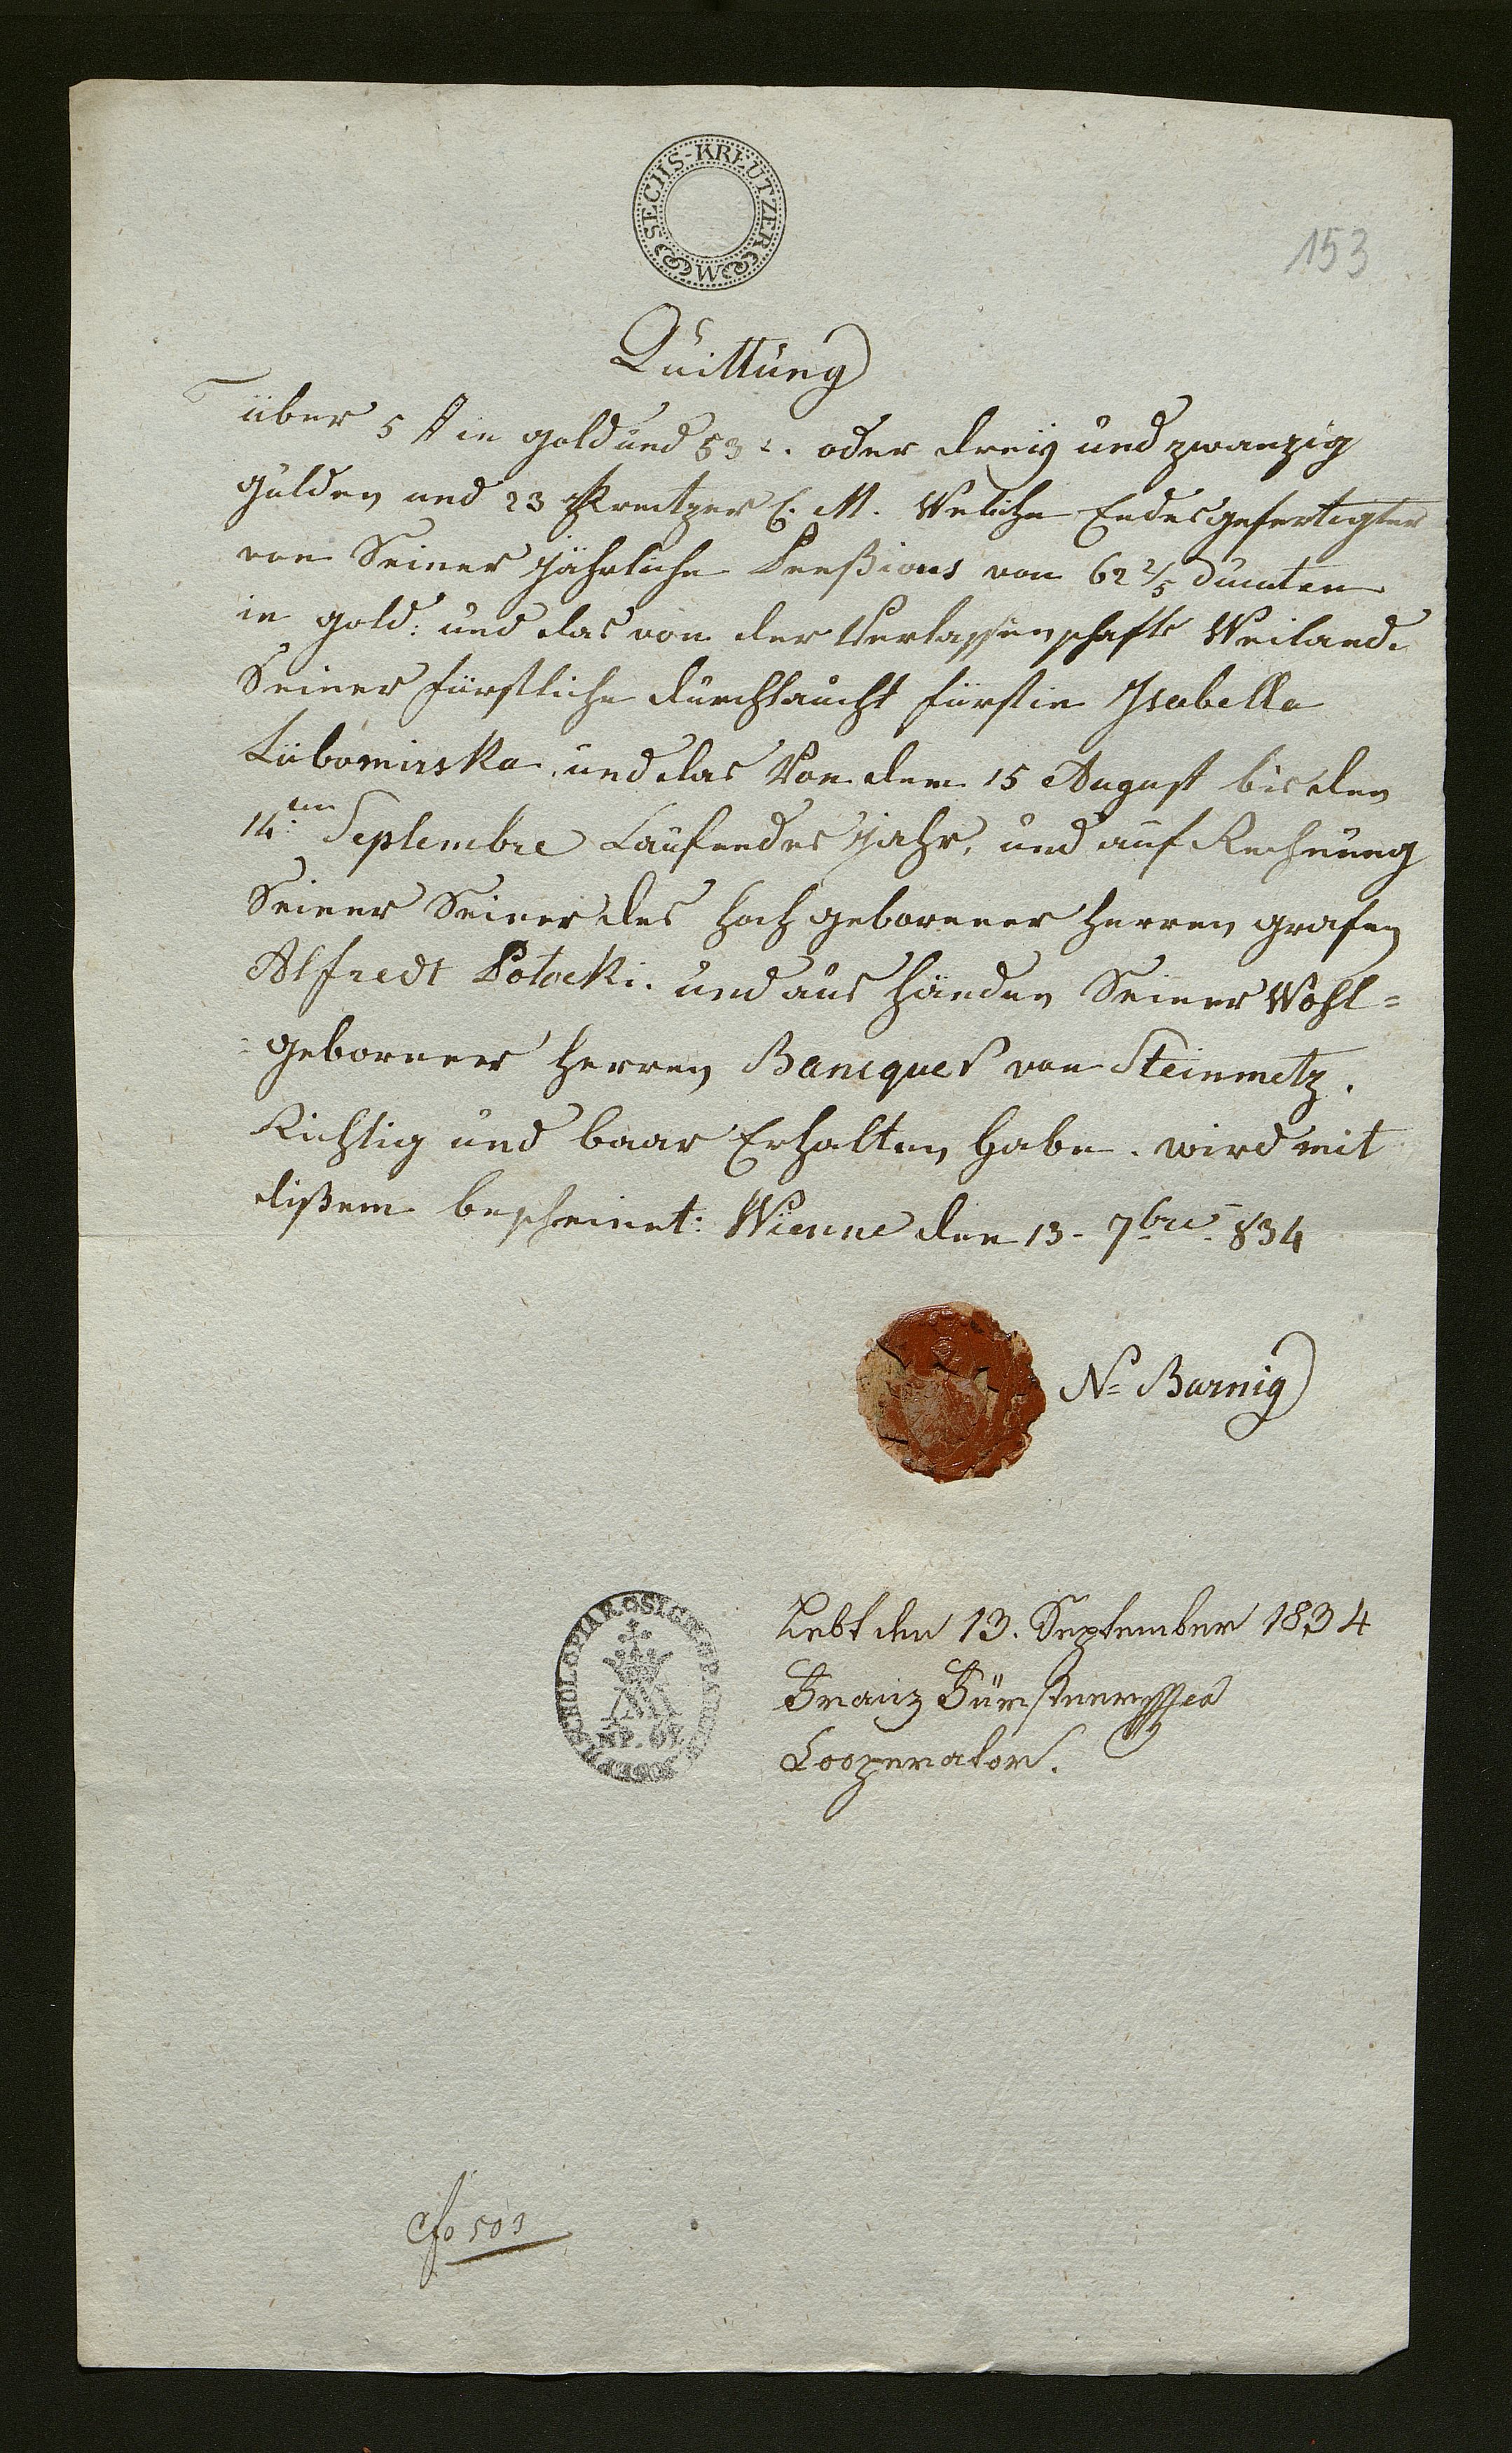 SECHS-KREUTZER
W M
153
Quittung
über 5 # in gold und 53 x. oder dreÿ und zwanzig
gulden und 23 Kreutzer C. M. Welche Endesgefertigter
von Seiner jährliche Penßions von 62 2/5 Ducaten
in gold: und das von der Verlassenschafts Weiland.
Seiner fürstliche durchlaucht fürstin Isabella
Lubomirska. und das Von dem 15 August bis den
14:ten Septembre Laufendes jahr, und auf Rechnung
Seiner Seiner des Hoch geborener Herren grafen
Alfredt Potocki. und aus Händen Seiner Wohl=
=geborener Herren Bancquet von Steinmetz.
Richtig und baar Erhalten Habe. wird mit
dißem bescheinet: Wienne den 13. 7bre. 834
N= Barnig
Lebt den 13. September 1834
Franz
Cooperator.
SCHOL. PIAR.
NP. 57
503